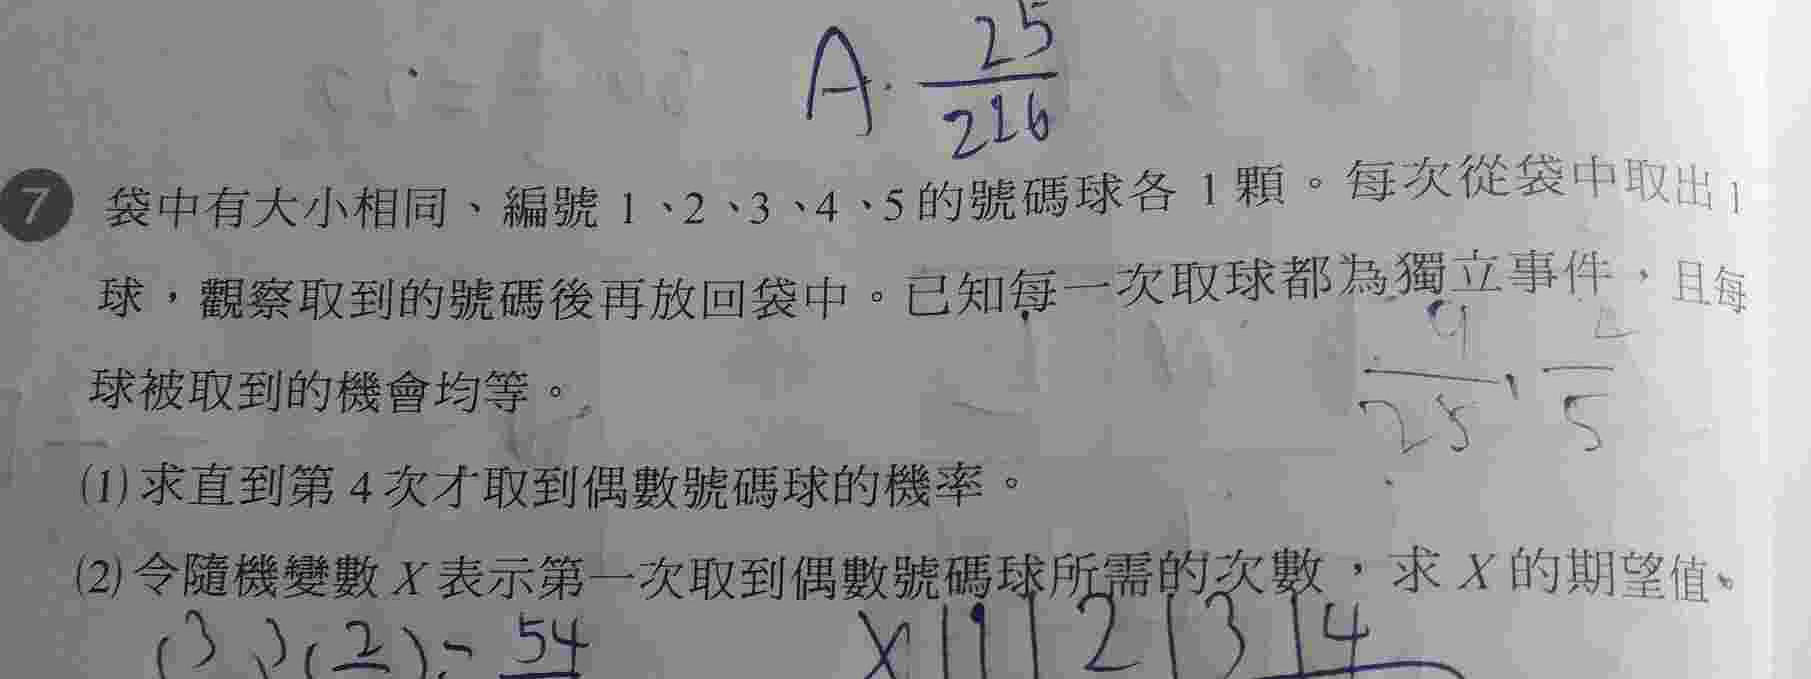 A. 25/216
7 袋中有大小相同、編號 1、2、3、4、5 的號碼球各 1 顆。每次從袋中取出 1
球,觀察取到的號碼後再放回袋中。已知每一次取球都為獨立事件,且每
球被取到的機會均等。
9/25, /5
(1) 求直到第 4 次才取到偶數號碼球的機率。
(2) 令隨機變數 X 表示第一次取到偶數號碼球所需的次數,求 X 的期望值。
(3 )3(2 )= 54
X | 1 | 2 | 3 | 4